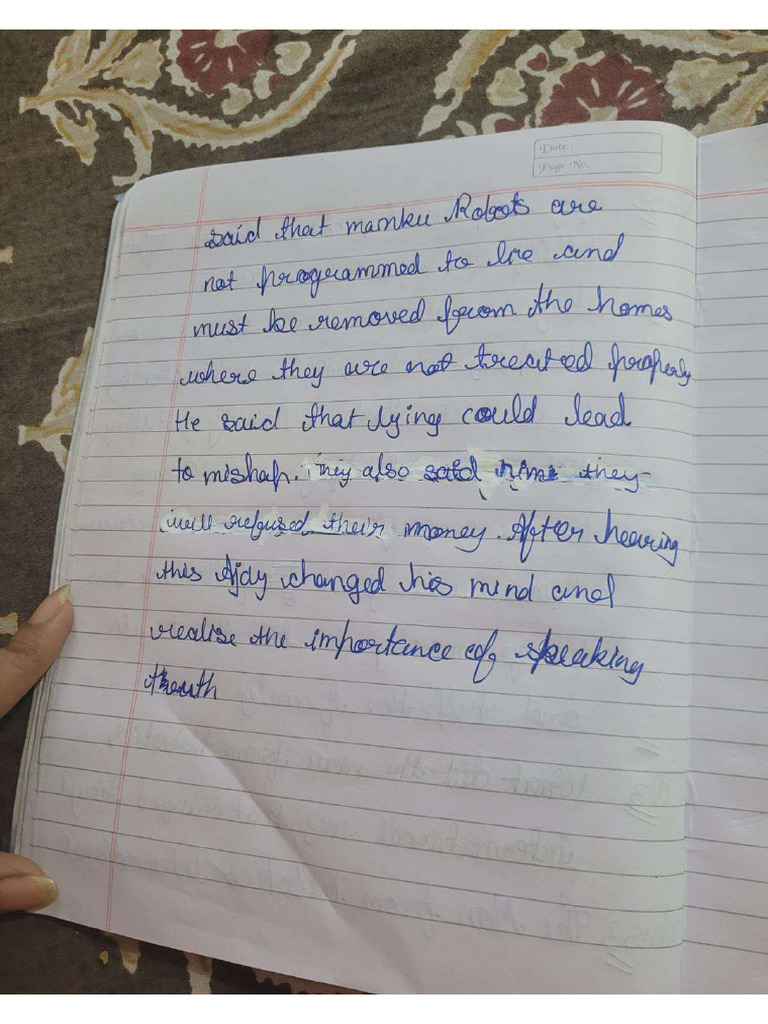 Date :
Page No.
said that manku Robots are
not programmed to lie and
must be removed from the homes
where they are not treated properly
He said that lying could lead
to mishap. They also said him they
will refused their money. After hearing
this Ajay changed his mind and
realise the importance of speaking
truth